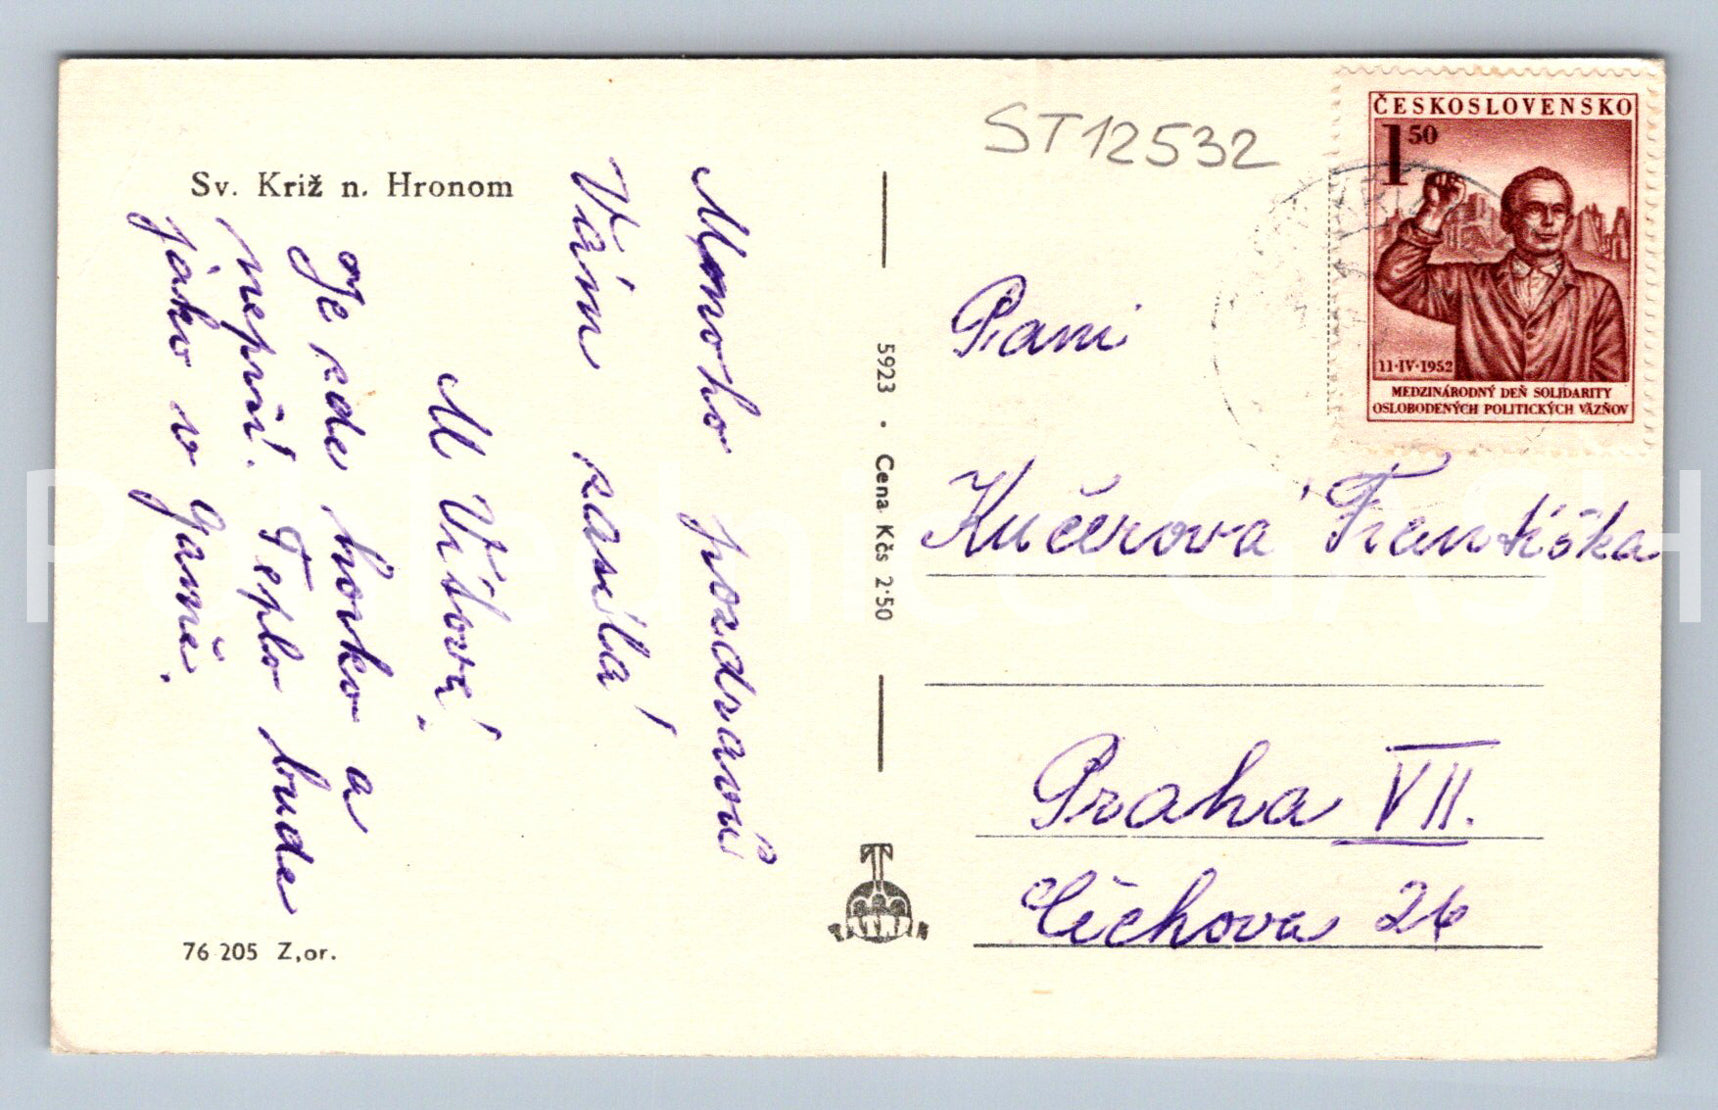 Sv. Križ n. Hronom
Mnoho pozdravů
Vám zasílá
M Vítová.
Je zde horko a
neprší. Teplo bude
jako v
76 205 Z,or.
5923 • Cena Kčs 2·50
ST12532
ČESKOSLOVENSKO
1 50
11·IV·1952
MEDZINÁRODNÝ DEŇ SOLIDARITY
OSLOBODENÝCH POLITICKÝCH VÄZŇOV
Paní
Kučerová Františka
Praha VII.
Čechova 26
Pohlednice GASH